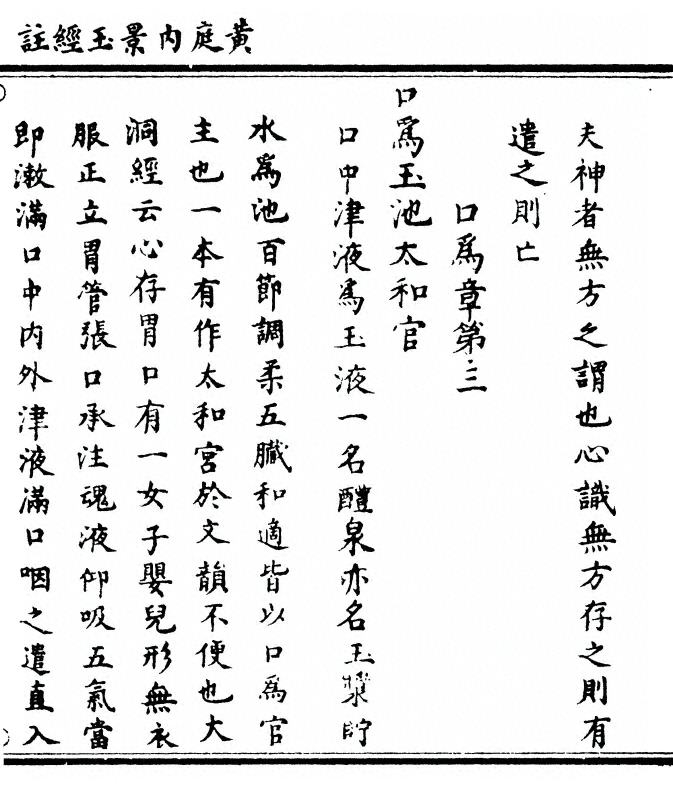 黃庭內景玉經註
夫神者無方之謂也心識無方存之則有
遣之則亡
口為章第三
口為玉池太和官
口中津液為玉液一名醴泉亦名玉漿貯
水為池百節調柔五臟和適皆以口為官
主也一本有作太和宮於文韻不便也大
洞經云心存胃口有一女子嬰兒形無衣
服正立胃管張口承注魂液仰吸五氣當
即漱滿口中內外津液滿口咽之遣直入